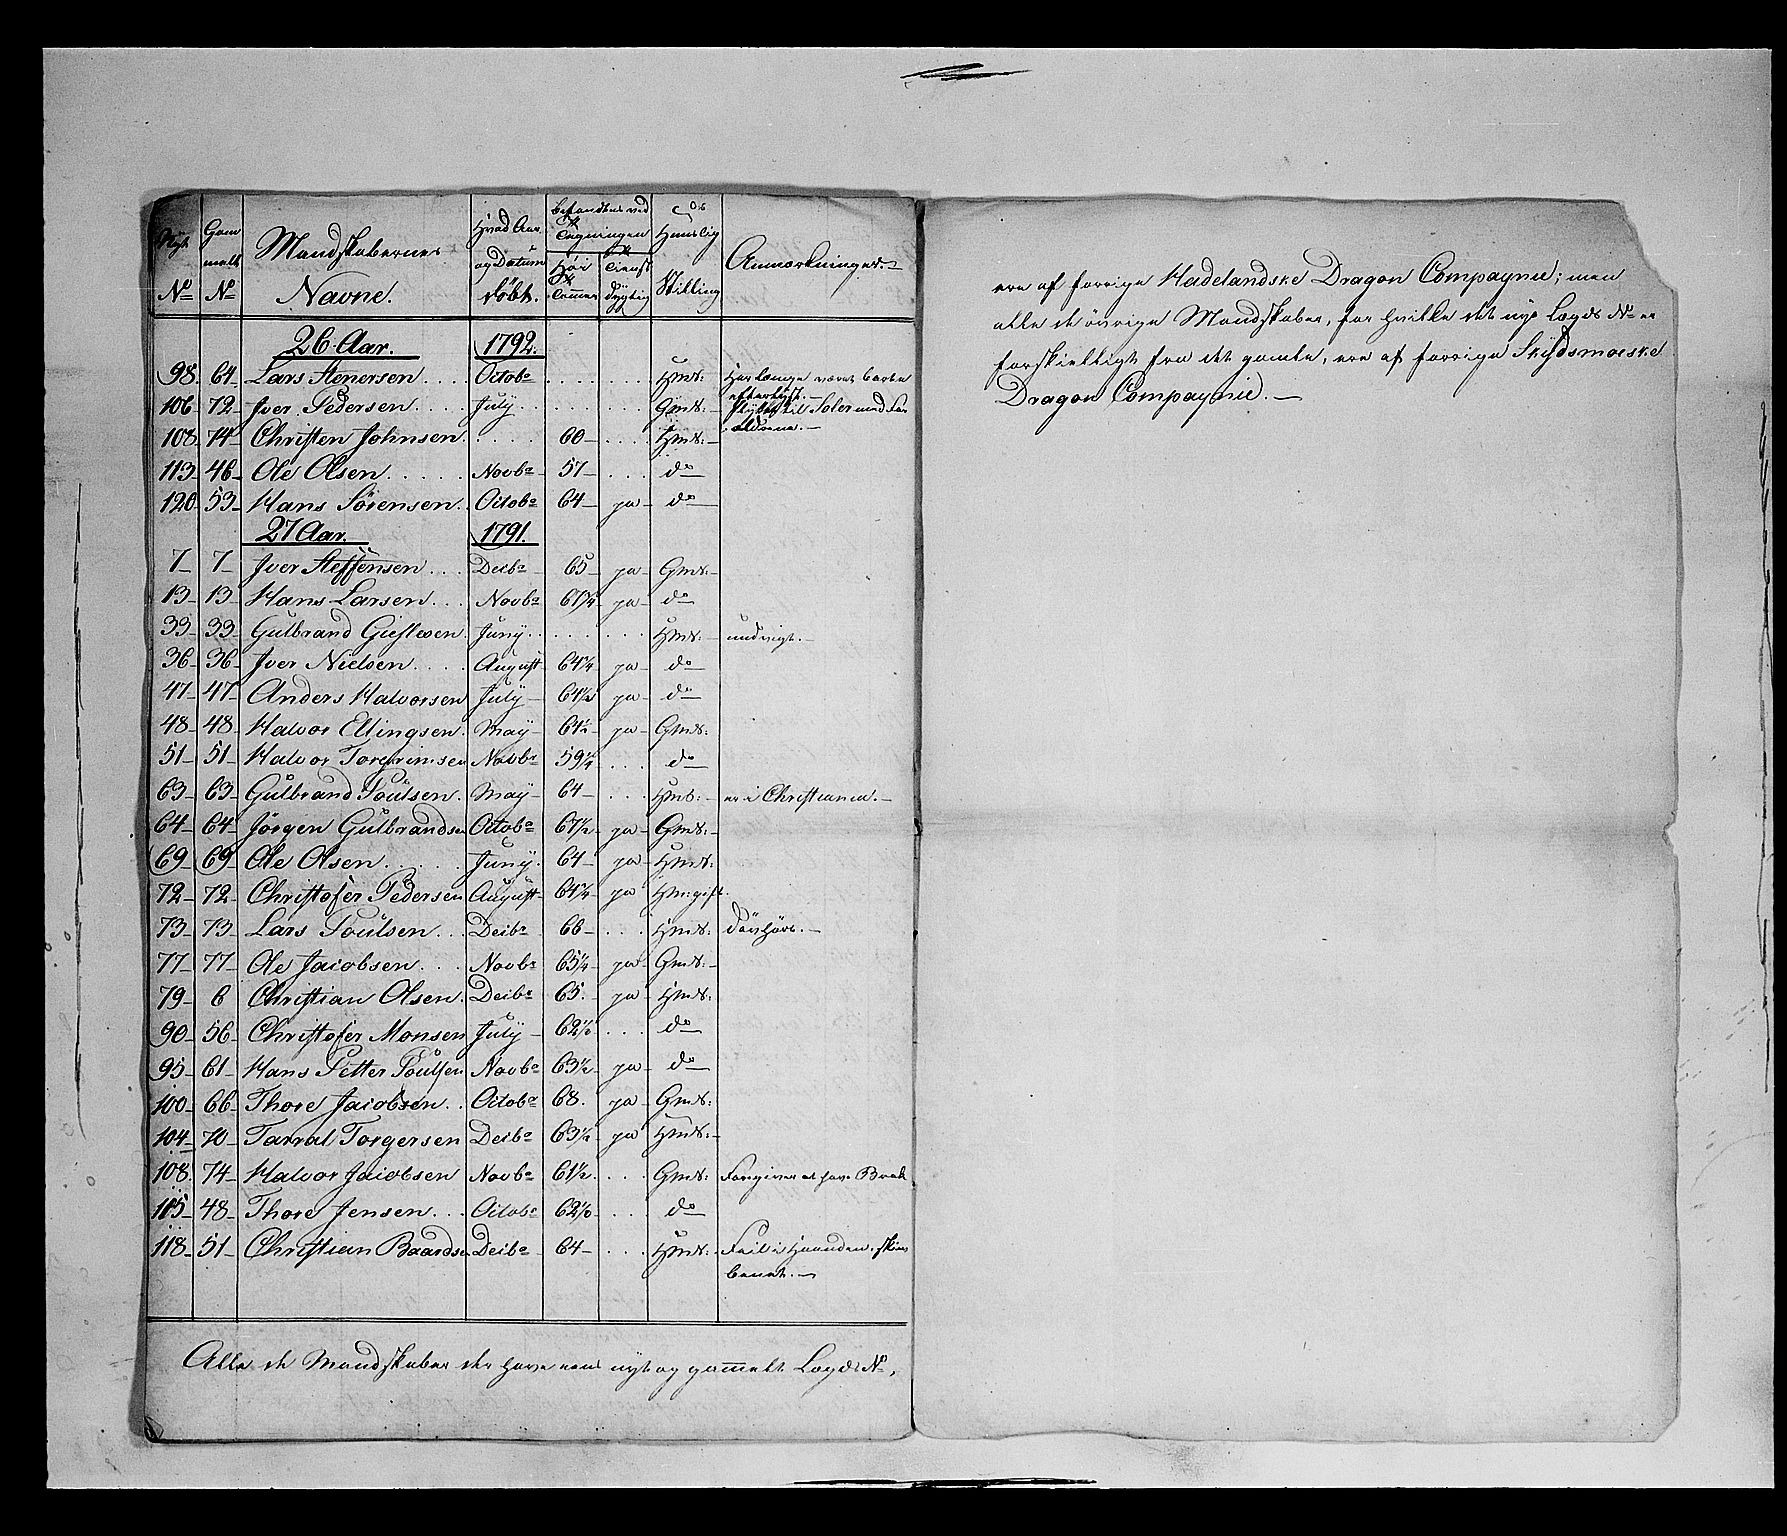 Nyt No | Gammelt No | Mandskabernes Navne. | Hvad Aar og Datum döbt. | befandtes ved Tagningen: Høi Tommer | befandtes ved Tagningen: tienstdygtig | Huuslig Stilling | Anmærkninger.
26 Aar. 1792.
98. 64 Lars Stenersen .... Octobr ..... Hmd: Har længe været borte
efterlyst.
106 72 Iver Pedersen .... July .... Gmd: flyttet til Soler med For
ældrene.
108 74 Christen Johnsen. .... 60 .... Hmd:
113 46 Ole Olsen ..... Novbr 57 .... do
120 53 Hans Sörensen .. Octobr 64 ja do
27 Aar. 1791.
7 7 Iver Steffensen ... Decbr 65 ja Gmd:
13 13 Hans Larsen .... Novbr 67¾ ja do
33 33 Gulbrand Gieflesen. Juny ..... Hmd: undvigt.
36 36 Iver Nielsen .... August 64¼ ja do
47 47 Anders Halvorsen July 64½ ja do
48 48 Halvor Ellingsen. May 64½ ja Gmd:
51 51 Halvor Torgrimsen Novbr 59¼ ... do
63 63 Gulbrand Poulsen. May 64 ... Hmd: er i Christiania.
64 64 Jörgen Gulbrandsen Octobr 67½ ja Gmd:
69 69 Ole Olsen ..... Juny. 64 ja Hmd:
72 72 Christofer Pedersen August 64¼ ja Hm: gift.
73 73 Lars Poulsen ... Decbr 66 ... Hmd: Dövhört.
77 77 Ole Jacobsen .... Novbr 65¼ ja Gmd:
79 6 Christian Olsen. Decbr 65. ja Hmd:
90 56 Christofer Monsen July 62½ ... do
95 61 Hans Petter Poulsen Novbr 63½ ja do
100 66 Thore Jacobsen ... Octobr 68. ja Gmd:
104 70 Tarral Torgersen Decbr 63½ ja Hmd:
108. 74 Halvor Jacobsen Novbr 61½ ... Gmd: Foregiver at have Brok
115 48 Thore Jensen ... Octobr 62½ ... do
118 51 Christian Baardsen Decbr 64 ... Hmd: Feil i Haanden, skin
benet.
Alle de Mandskaber der have eens nyt og gammelt Lægds No,
ere af forrige Hadelandske Dragon Compagnie; men
alle de övrige Mandskaber, for hvilke det nye Lægds No er
forskielligt fra det gamle, ere af forrige Skydsmoeske
Dragon Compagnie.